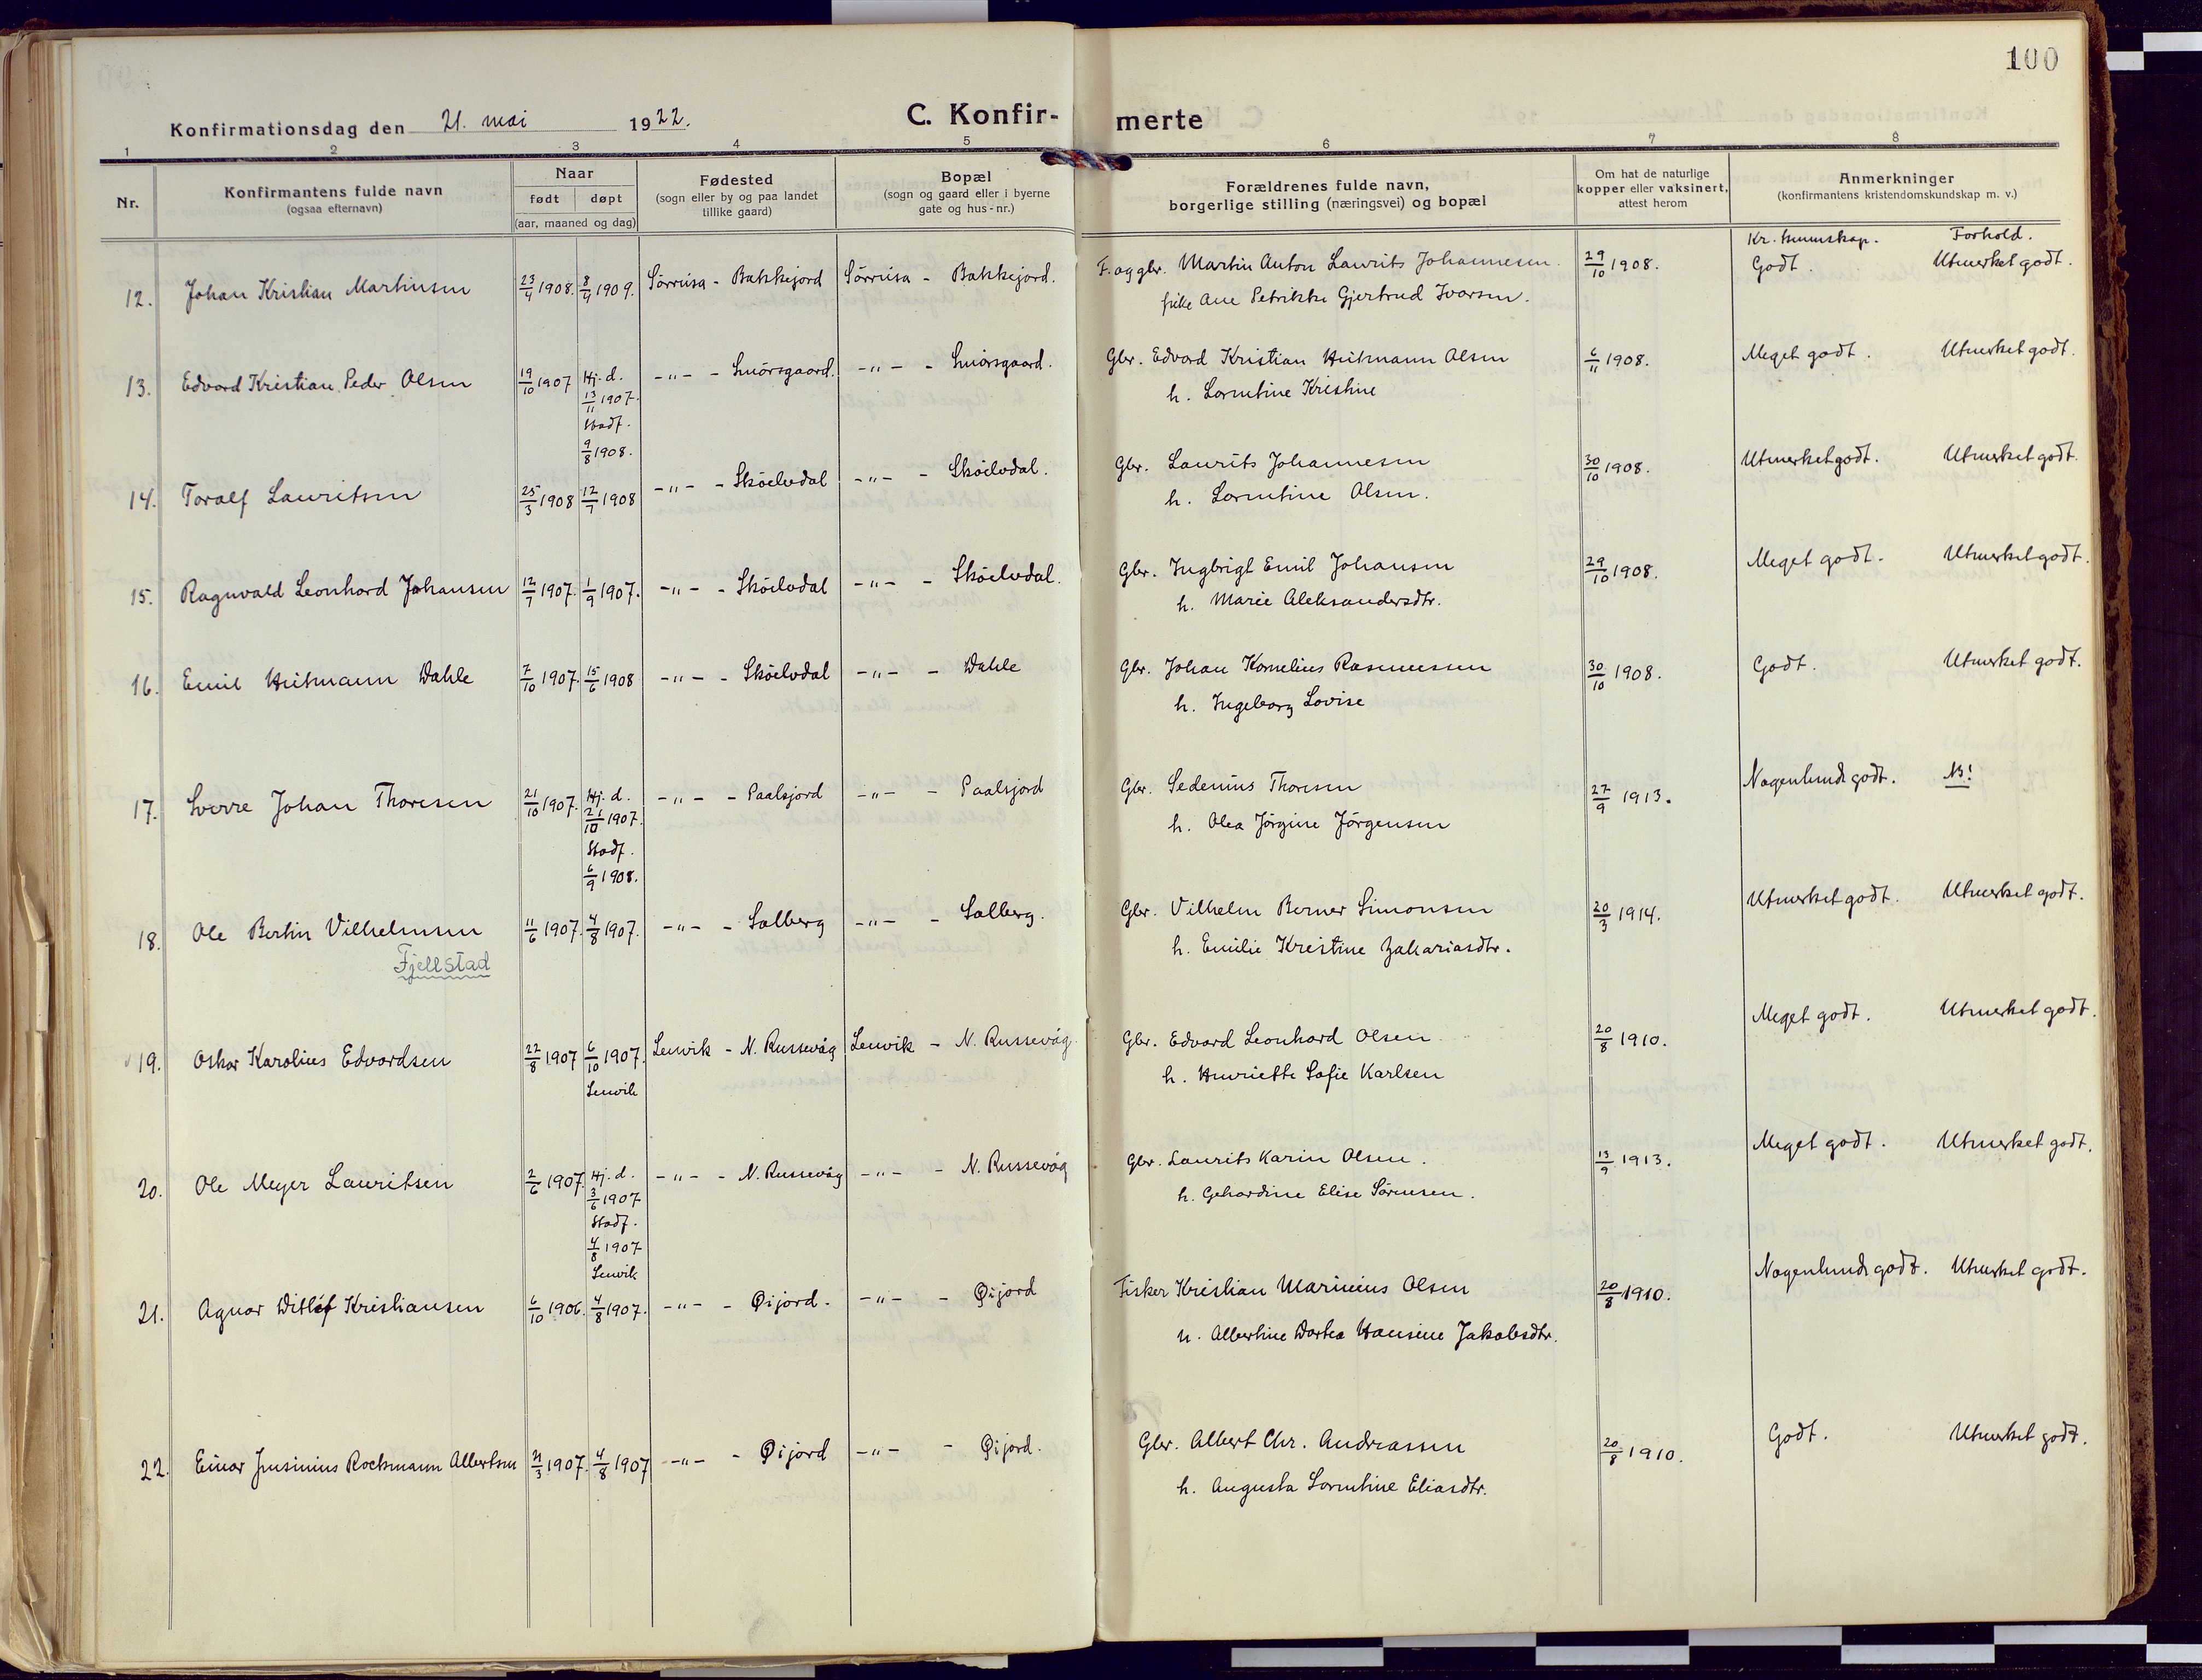 100
Konfirmationsdag den 21. mai 1922.
C. Konfir-merte
1 2 3 4 5 6 7 8
Nr.
Konfirmantens fulde navn
(ogsaa efternavn)
Naar
født døpt
(aar, maaned og dag)
Fødested
(sogn eller by og paa landet
tillike gaard)
Bopæl
(sogn og gaard eller i byerne
gate og hus-nr.)
Forældrenes fulde navn,
borgerlige stilling (næringsvei) og bopæl
Om hat de naturlige
kopper eller vaksinert,
attest herom
Anmerkninger
(konfirmantens kristendomskundskap m. v.)
Kr. kunnskap. Forhold.
12. Johan Kristian Martinsen 23/4 1908. 8/9 1909. Sörreisa - Bakkejord Sörreisa - Bakkejord. F. og gbr. Martin Anton Laurits Johannesen. 29/10 1908. Godt. Utmerket godt.
pike Ane Petrikke Gjertrud Ivarsen.
13. Edvard Kristian Peder Olsen 19/10 1907 Hj. d. -"- - Smörsgaard. -"- - Smörsgaard. Gbr. Edvard Kristian Hitmann Olsen 6/11 1908. Meget godt. Utmerket godt.
13/11 1907. h. Lorentine Kristine
Stadf.
9/8 1908.
14. Toralf Lauritsen 25/3 1908 12/7 1908 -"- - Sköelvdal -"- - Sköelvdal. Gbr. Laurits Johannesen 30/10 1908. Utmerket godt. Utmerket godt.
h. Lorentine Olsen.
15. Ragnvald Leonhard Johansen 12/7 1907. 1/9 1907. -"- - Sköelvdal -"- - Sköelvdal. Gbr. Ingbrigt Emil Johansen 29/10 1908. Meget godt. Utmerket godt.
h. Marie Aleksandersdtr.
16. Emil Hitmann Dahle 7/10 1907. 15/6 1908 -"- - Sköelvdal -"- - Dahle Gbr. Johan Kornelius Rasmussen 30/10 1908. Godt. Utmerket godt.
h. Ingeborg Lovise
17. Sverre Johan Thoresen 21/10 1907. Hj. d. -"- - Paalsjord -"- - Paalsjord Gbr. Sedenius Thoresen 27/9 1913. Nogenlunde godt. NB!
21/10 1907. h. Olea Jörgine Jörgensen
Stadf.
6/9 1908.
18. Ole Bertin Vilhelmsen 11/6 1907. 4/8 1907. -"- - Solberg -"- - Solberg. Gbr. Vilhelm Berner Simonsen 20/3 1914. Utmerket godt. Utmerket godt.
Fjellstad h. Emilie Kristine Zakariasdtr.
19. Oskar Karolius Edvardsen 22/8 1907 6/10 1907. Lenvik - N. Russevåg Lenvik - N. Russevåg. Gbr. Edvard Leonhard Olsen 20/8 1910. Meget godt. Utmerket godt.
Lenvik h. Henriette Sofie Karlsen
20. Ole Meyer Lauritsen 2/6 1907. Hj. d. -"- - N. Russevåg -"- - N. Russevåg Gbr. Laurits Karin Olsen. 13/9 1913. Meget godt. Utmerket godt.
3/6 1907 h. Gehardine Elise Sörensen.
Stadf.
4/8 1907
Lenvik
21. Agnar Ditlef Kristiansen 6/10 1906. 4/8 1907. -"- - Øijord. -"- - Øijord Fisker Kristian Marinius Olsen 20/8 1910. Nogenlunde godt. Utmerket godt.
h. Albertine Dortea Hansine Jakobsdtr.
22. Einar Jensinius Rockmann Albertsen 21/3 1907. 4/8 1907 -"- - Øijord -"- - Øijord. Gbr. Albert Chr. Andreassen 20/8 1910. Godt. Utmerket godt.
h. Augusta Lorentine Eliasdtr.